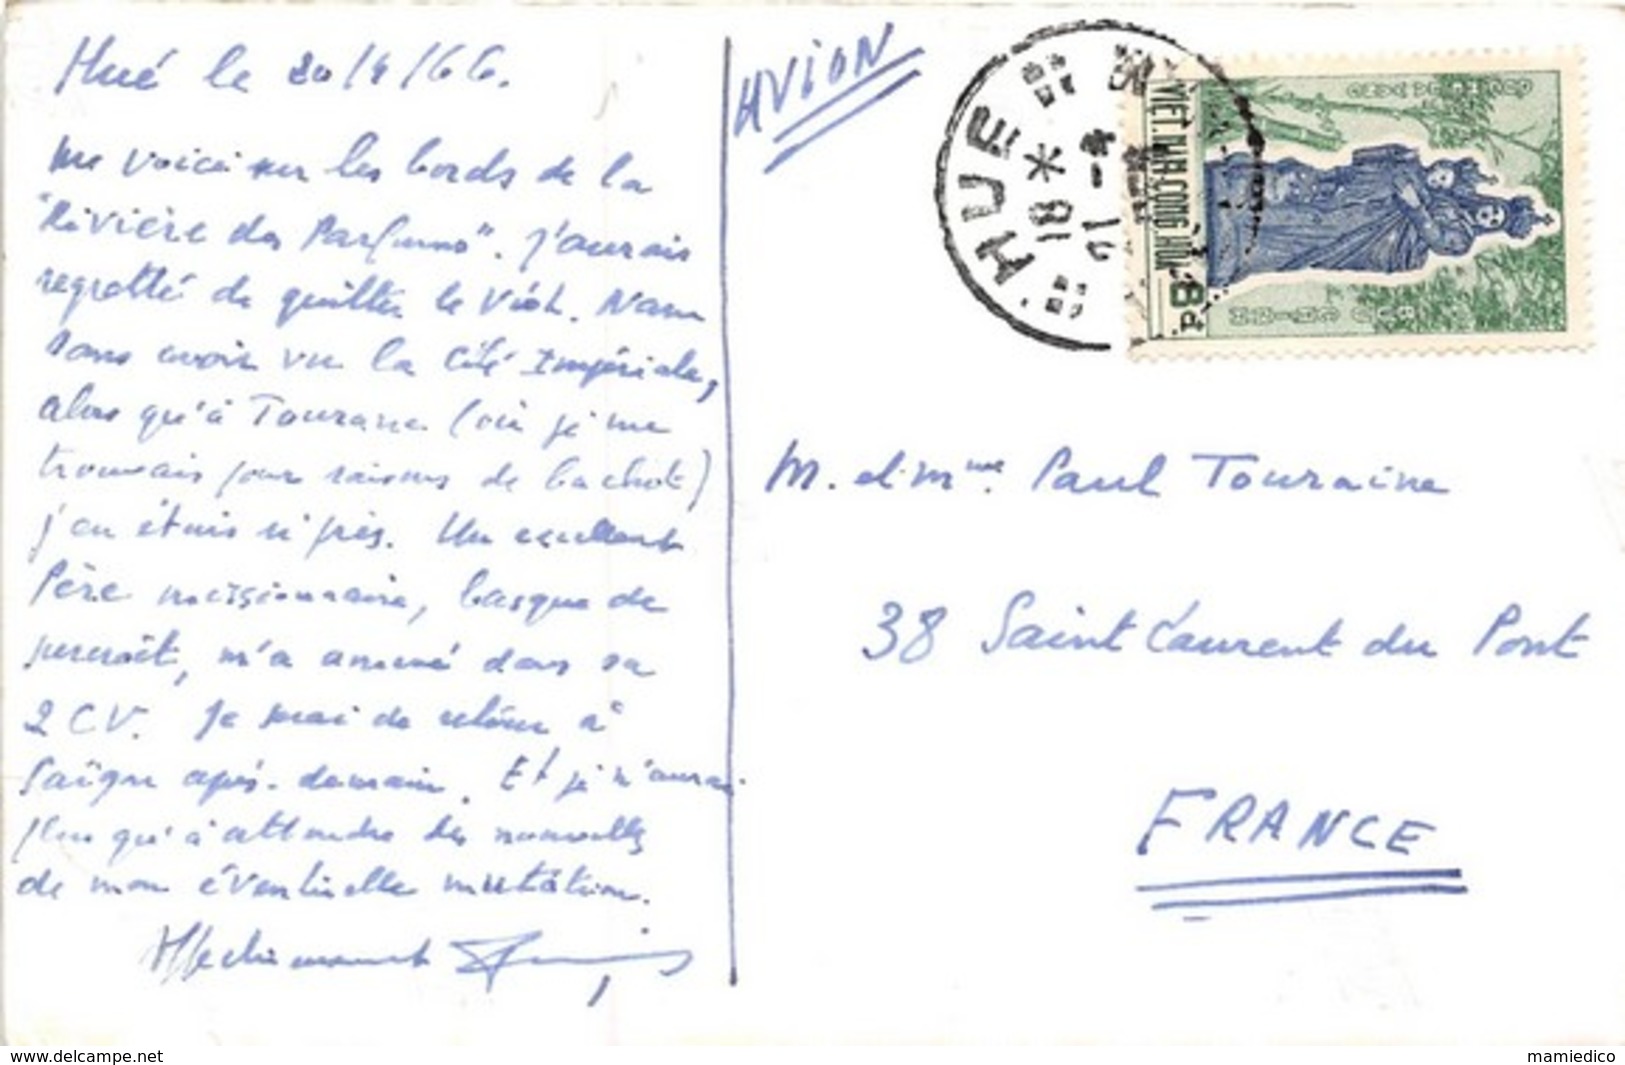 Hué le 20/4/66.
Me voici sur les bords de la
"Rivière des Parfums". J'aurais
regretté de quitter le Viêt. Nam
sans avoir vu la Cité Impériale,
alors qu'à Tourane (où je me
trouvais pour raisons de bachot)
j'en étais si près. Un excellent
Père missionnaire, basque de
surcroît, m'a amené dans sa
2 CV. Je serai de retour à
Saïgon après-demain. Et je n'aurai
plus qu'à attendre des nouvelles
de mon éventuelle mutation.
Affectueusement
AVION
HUE
18 *
21-4
VIET-NAM CONG HOA
8
M. et Mme. Paul Touraine
38 Saint Laurent du Pont
FRANCE
www.delcampe.net
mamiedico